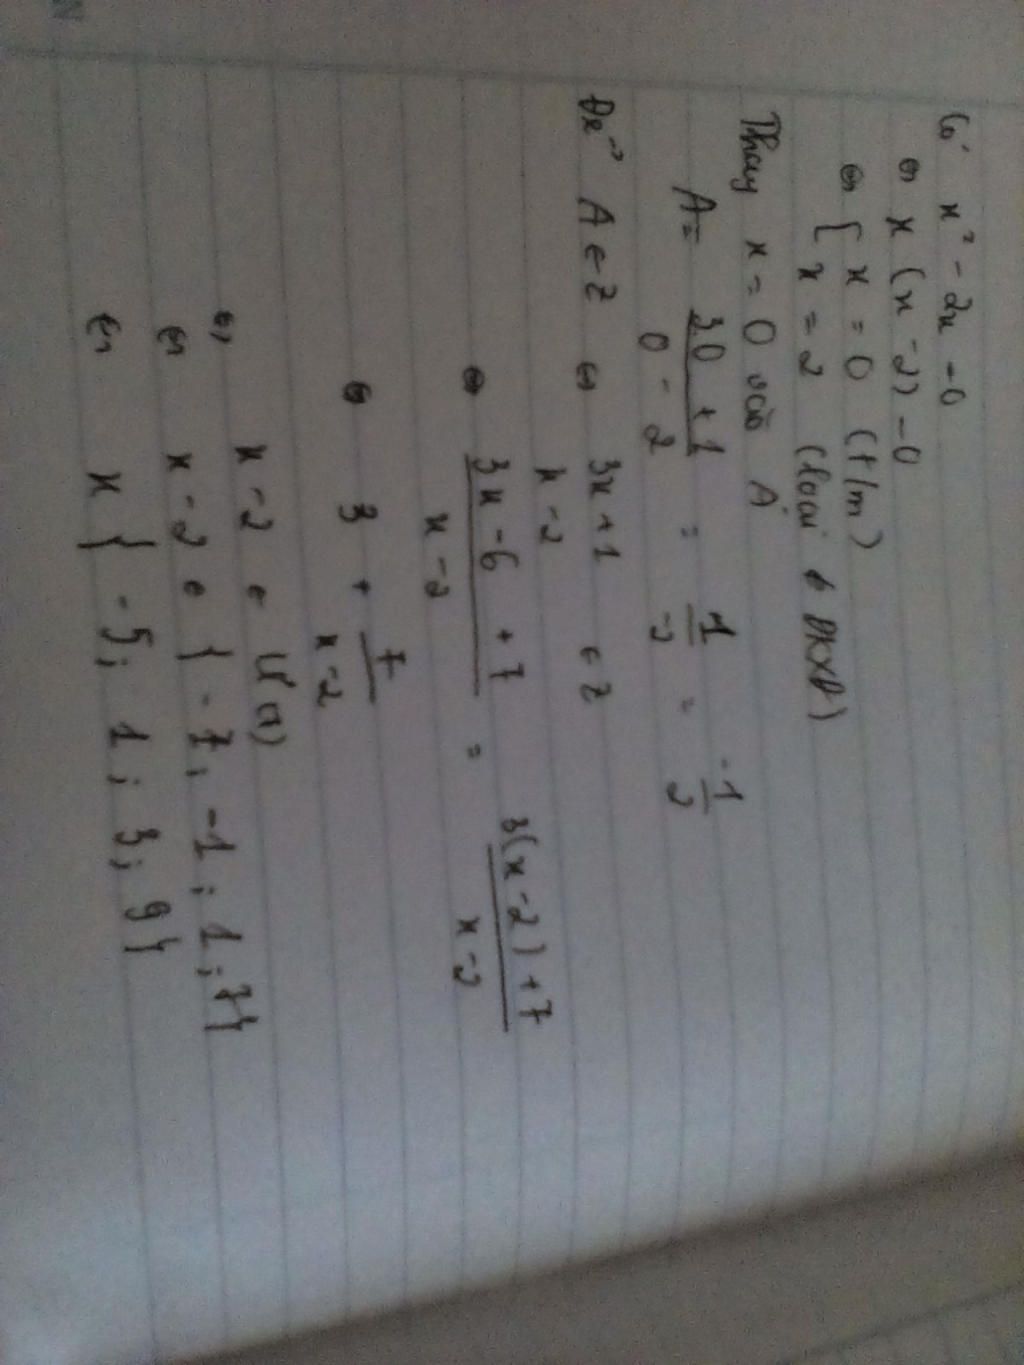 Có x² - 2x = 0
⇔ x (x - 2) = 0
⇔ { x = 0 (t/m)
{ x = 2 (loại ĐKXĐ)
Thay x = 0 vào A
A = 3.0 + 1 / 0 - 2 = 1 / -2 = -1 / 2
Để A ∈ Z ⇔ 3x + 1 / x - 2 ∈ Z
⇔ 3x - 6 + 7 / x - 2 = 3(x - 2) + 7 / x - 2
⇔ 3 + 7 / x - 2
⇔ x - 2 ∈ Ư(7)
⇔ x - 2 ∈ { -7; -1; 1; 7}
⇔ x { -5; 1; 3; 9}